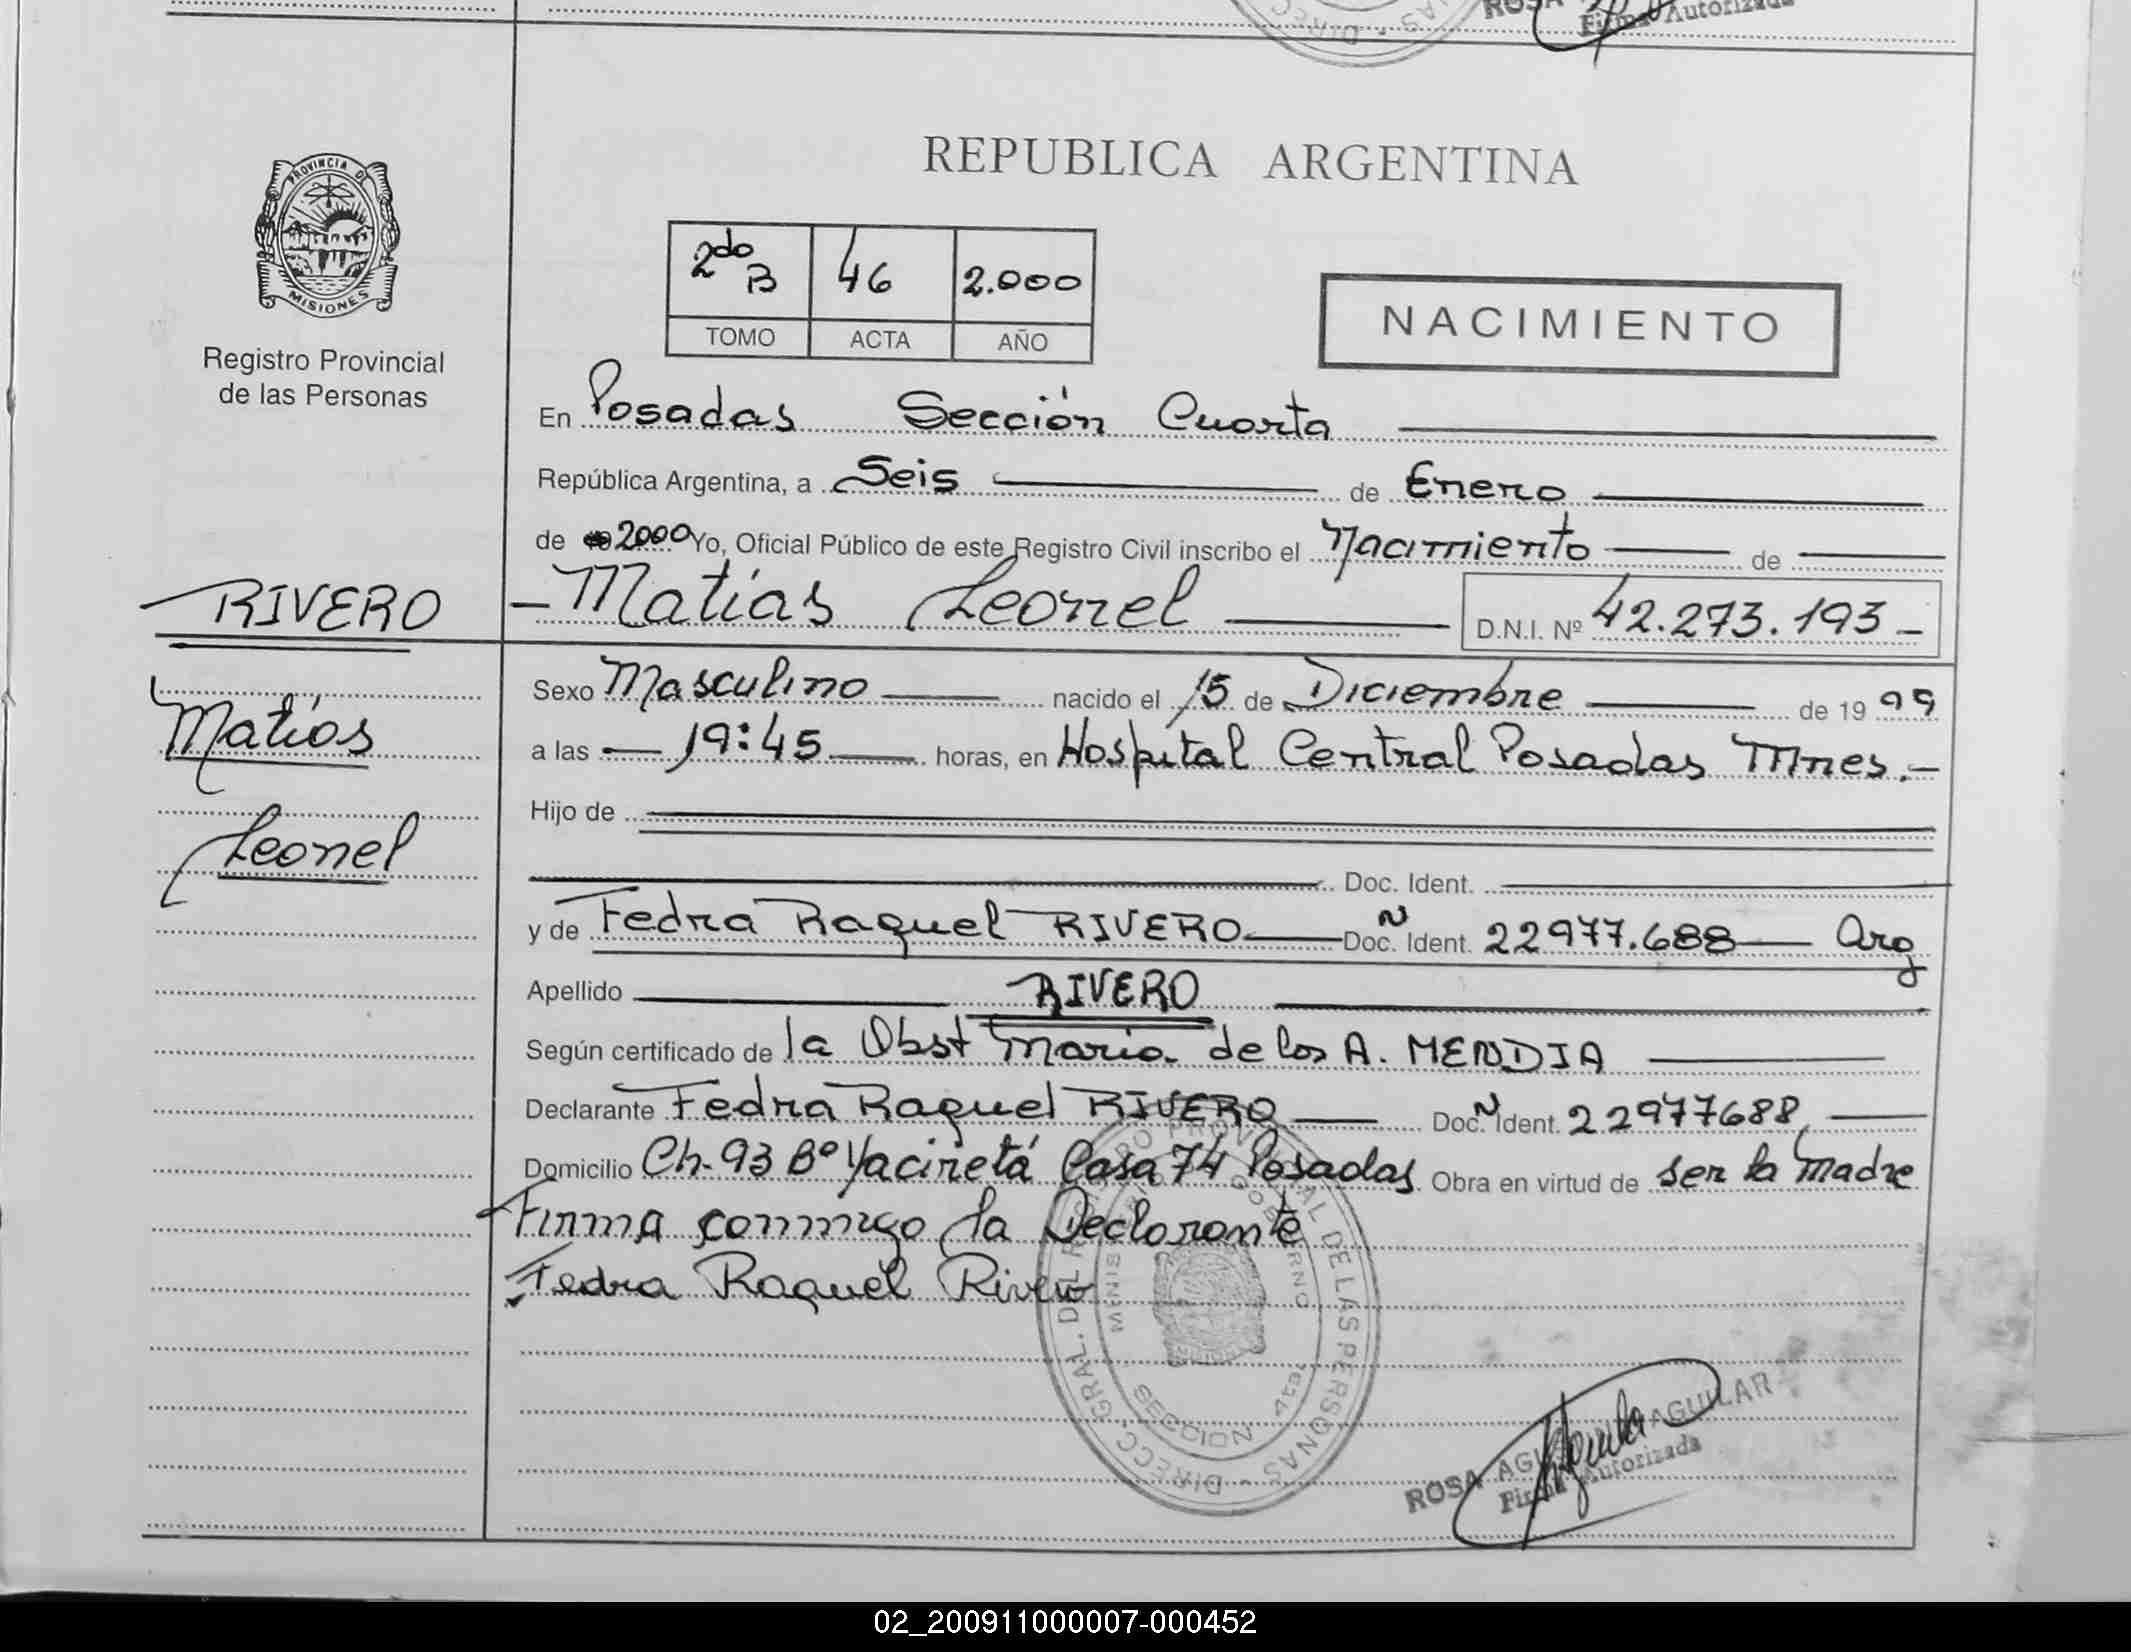 ROSA
Firma Autorizada
PROVINCIA DE
MISIONES
Registro Provincial
de las Personas
REPUBLICA ARGENTINA
2do B 46 2.000
TOMO ACTA AÑO
NACIMIENTO
En Posadas Sección Cuarta
República Argentina, a Seis de Enero
de 2000 Yo, Oficial Público de este Registro Civil inscribo el Nacimiento de
RIVERO
Matías Leonel D.N.I. Nº 42.273.193
Matías
Leonel
Sexo Masculino nacido el 15 de Diciembre de 1999
a las 19:45 horas, en Hospital Central Posadas Mnes.
Hijo de
Doc. Ident.
y de Fedra Raquel RIVERO Doc. N Ident. 22977.688 Arg
Apellido RIVERO
Según certificado de la Obst Maria de los A. MENDIA
Declarante Fedra Raquel RIVERO Doc. N Ident. 22977688
Domicilio Ch. 93 Bº Yaciretá Casa 74 Posadas Obra en virtud de ser la madre
Firma conmigo la Declarante
Fedra Raquel Rivero
DIRECC. GRAL. DEL REGISTRO PROVINCIAL DE LAS PERSONAS
SECCION 4ta.
ROSA AGUILAR
Firma Autorizada
02_200911000007-000452